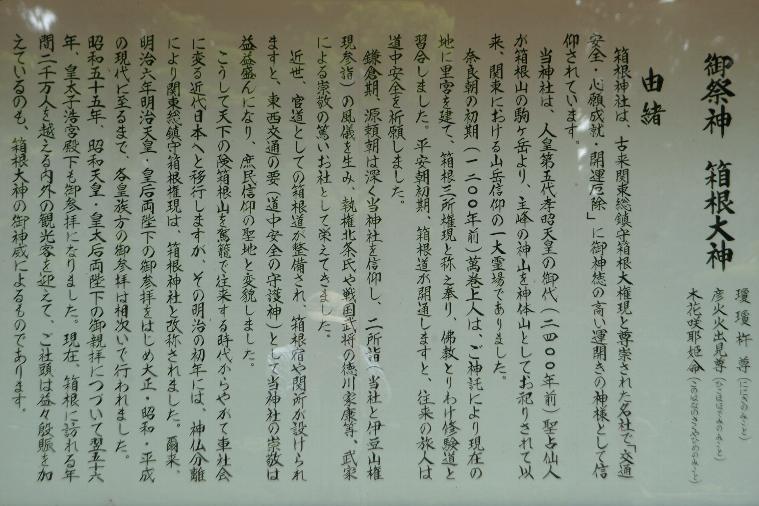 御祭神 箱根大神
瓊瓊杵尊(ににぎのみこと)
彦火火出見尊(ひこほほでみのみこと)
木花咲耶姫命(このはなのさくやひめのみこと)
由緒
箱根神社は、古来関東総鎮守箱根大権現と尊崇された名社で「交通
安全・心願成就・開運厄除」に御神徳の高い運開きの神様として信
仰されています。
当神社は、人皇第五代孝昭天皇の御代(二四〇〇年前)聖占仙人
が箱根山の駒ヶ岳より、主峰の神山を神体山としてお祀りされて以
来、関東における山岳信仰の一大霊場でありました。
奈良朝の初期(一二〇〇年前)萬巻上人は、ご神託により現在の
地に里宮を建て、箱根三所権現と称え奉り、佛教とりわけ修験道と
習合しました。平安朝初期、箱根道が開通しますと、往来の旅人は
道中安全を祈願しました。
鎌倉期、源頼朝は深く当神社を信仰し、二所詣(当社と伊豆山権
現参詣)の風儀を生み、執権北条氏や戦国武将の徳川家康等、武家
による崇敬の篤いお社として栄えてきました。
近世、官道としての箱根道が整備され、箱根宿や関所が設けられ
ますと、東西交通の要(道中安全の守護神)として当神社の崇敬は
益益盛んになり、庶民信仰の聖地と変貌しました。
こうして天下の険箱根山を駕籠で往来する時代からやがて車社会
に変る近代日本へと移行しますが、その明治の初年には、神仏分離
により関東総鎮守箱根権現は、箱根神社と改称されました。爾来、
明治六年明治天皇・皇后両陛下の御参拝をはじめ大正・昭和・平成
の現代に至るまで、各皇族方の御参拝は相次いで行われました。
昭和五十五年、昭和天皇・皇太后両陛下の御親拝につづいて翌五十六
年、皇太子浩宮殿下も御参拝になりました。現在、箱根に訪れる年
間二千万人を越える内外の観光客を迎えて、ご社頭は益々殷賑を加
えているのも、箱根大神の御神威によるものであります。